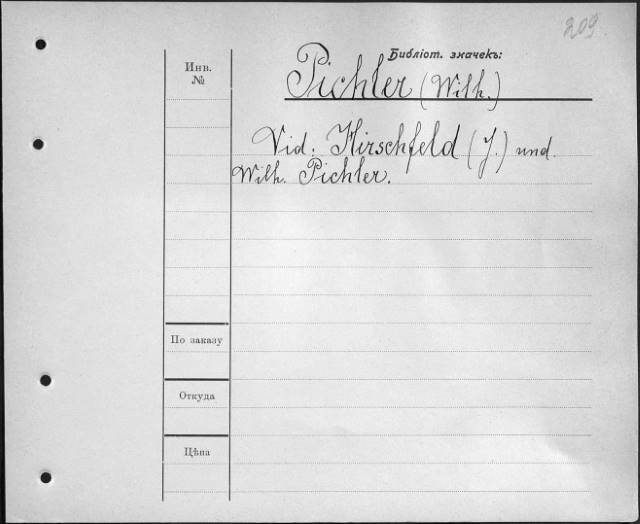 209.
Библіот. значекъ:
Инв.
№
Pichler (Wilh.)
Vid: Hirschfeld (J.) und
Wilh. Pichler.
По заказу
Откуда
Цѣна